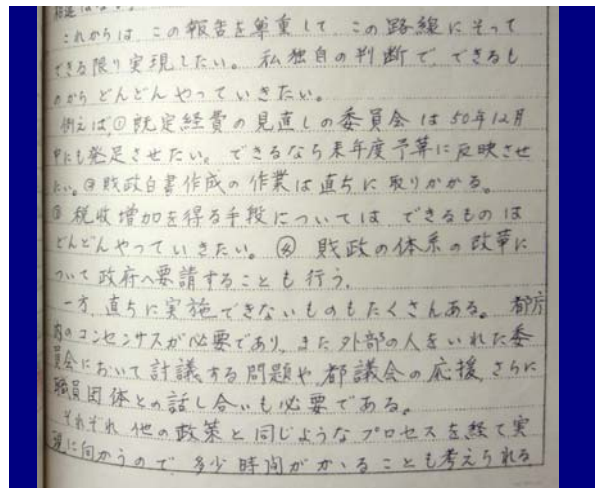 これからは、この報告を尊重して、この路線にそって
できる限り実現したい。私独自の判断で、できるも
のから どんどん やっていきたい。
例えば、① 既定経費の見直しの委員会は 50年12月
中にも発足させたい。できるなら来年度予算に反映させ
たい。② 財政白書作成の作業は直ちに取りかかる。
③ 税収増加を得る手段については できるものは
どんどんやっていきたい。④ 財政の体系の改革に
ついて政府へ要請することも行う。
一方、直ちに実施できないものもたくさんある。都庁
内のコンセンサスが必要であり、また外部の人をいれた委
員会において討議する問題や、都議会の応援、さらに
職員団体との話し合いも必要である。
それぞれ他の政策と同じようなプロセスを経て実
現に向かうので、多少時間がかゝることも考えられる